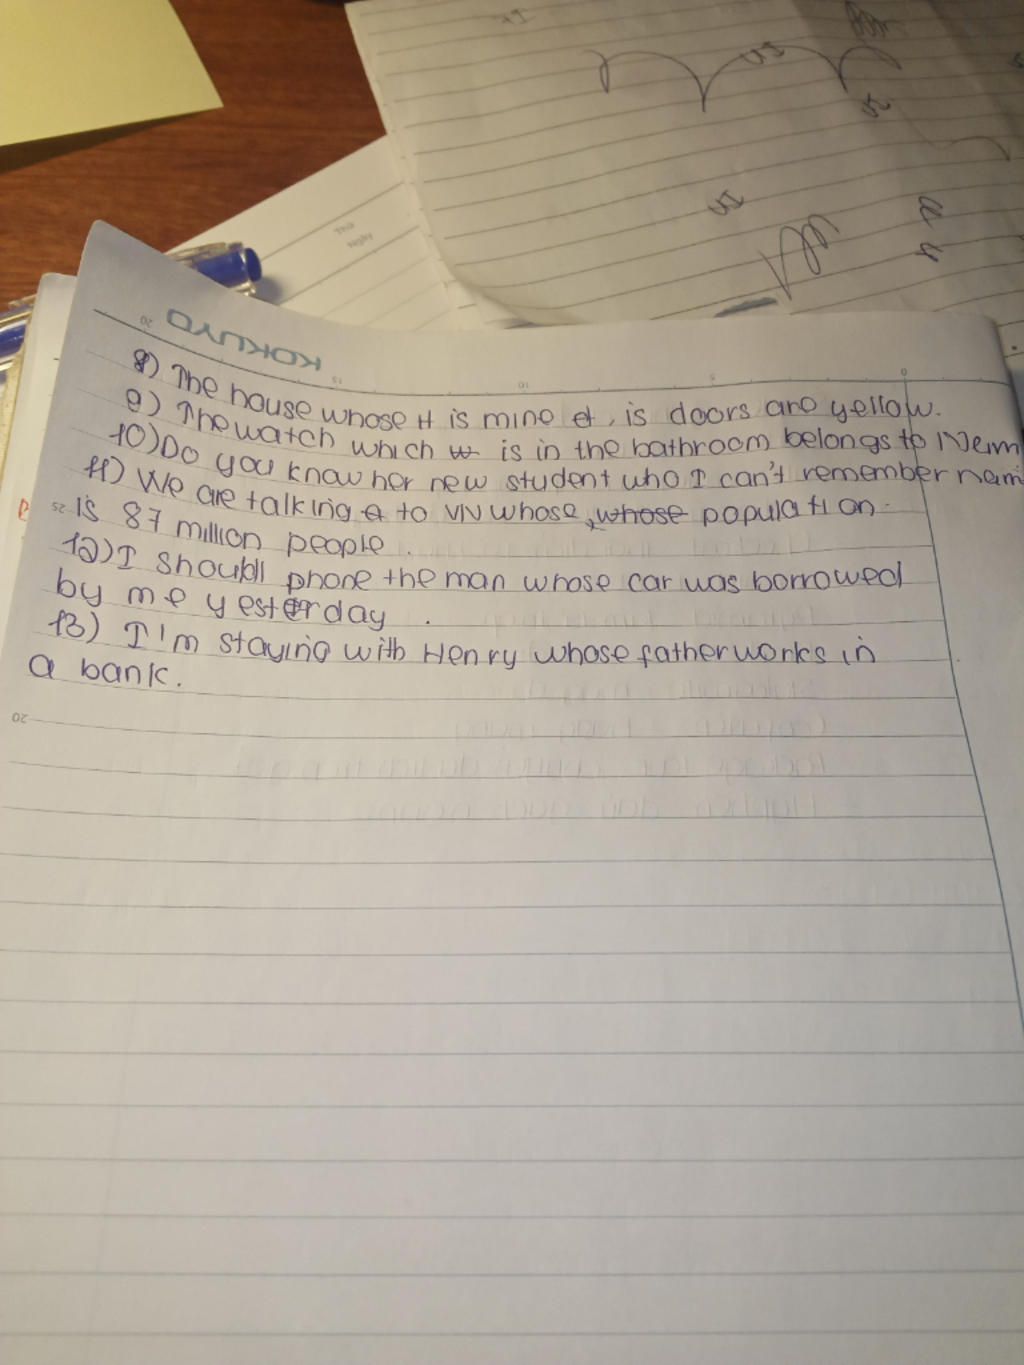 KOKUYO
8) The house whose H is mine et, is doors are yellow.
9) The watch which w is in the bathroom belongs to Neim
10) Do you know her new student who I can't remember nam
11) We are talking a to VN whose, whose population
is 87 million people.
12) I should phone the man whose car was borrowed
by me yesterday.
13) I'm staying with Henry whose father works in
a bank.